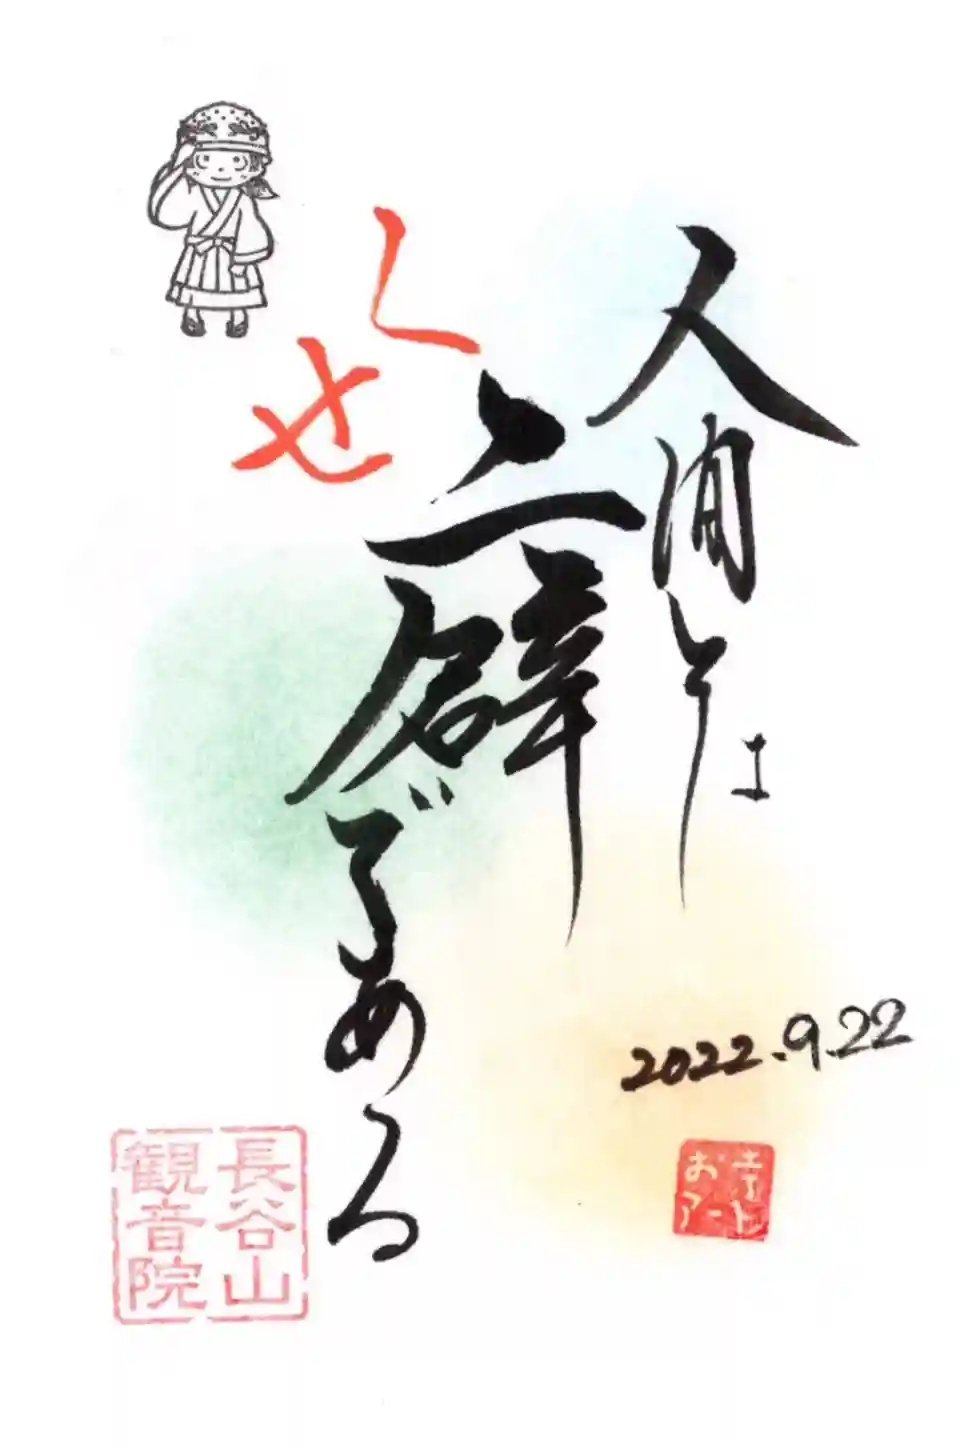 人間とは
くせ
癖である
2022.9.22
お寺
アート
長谷山
観音院